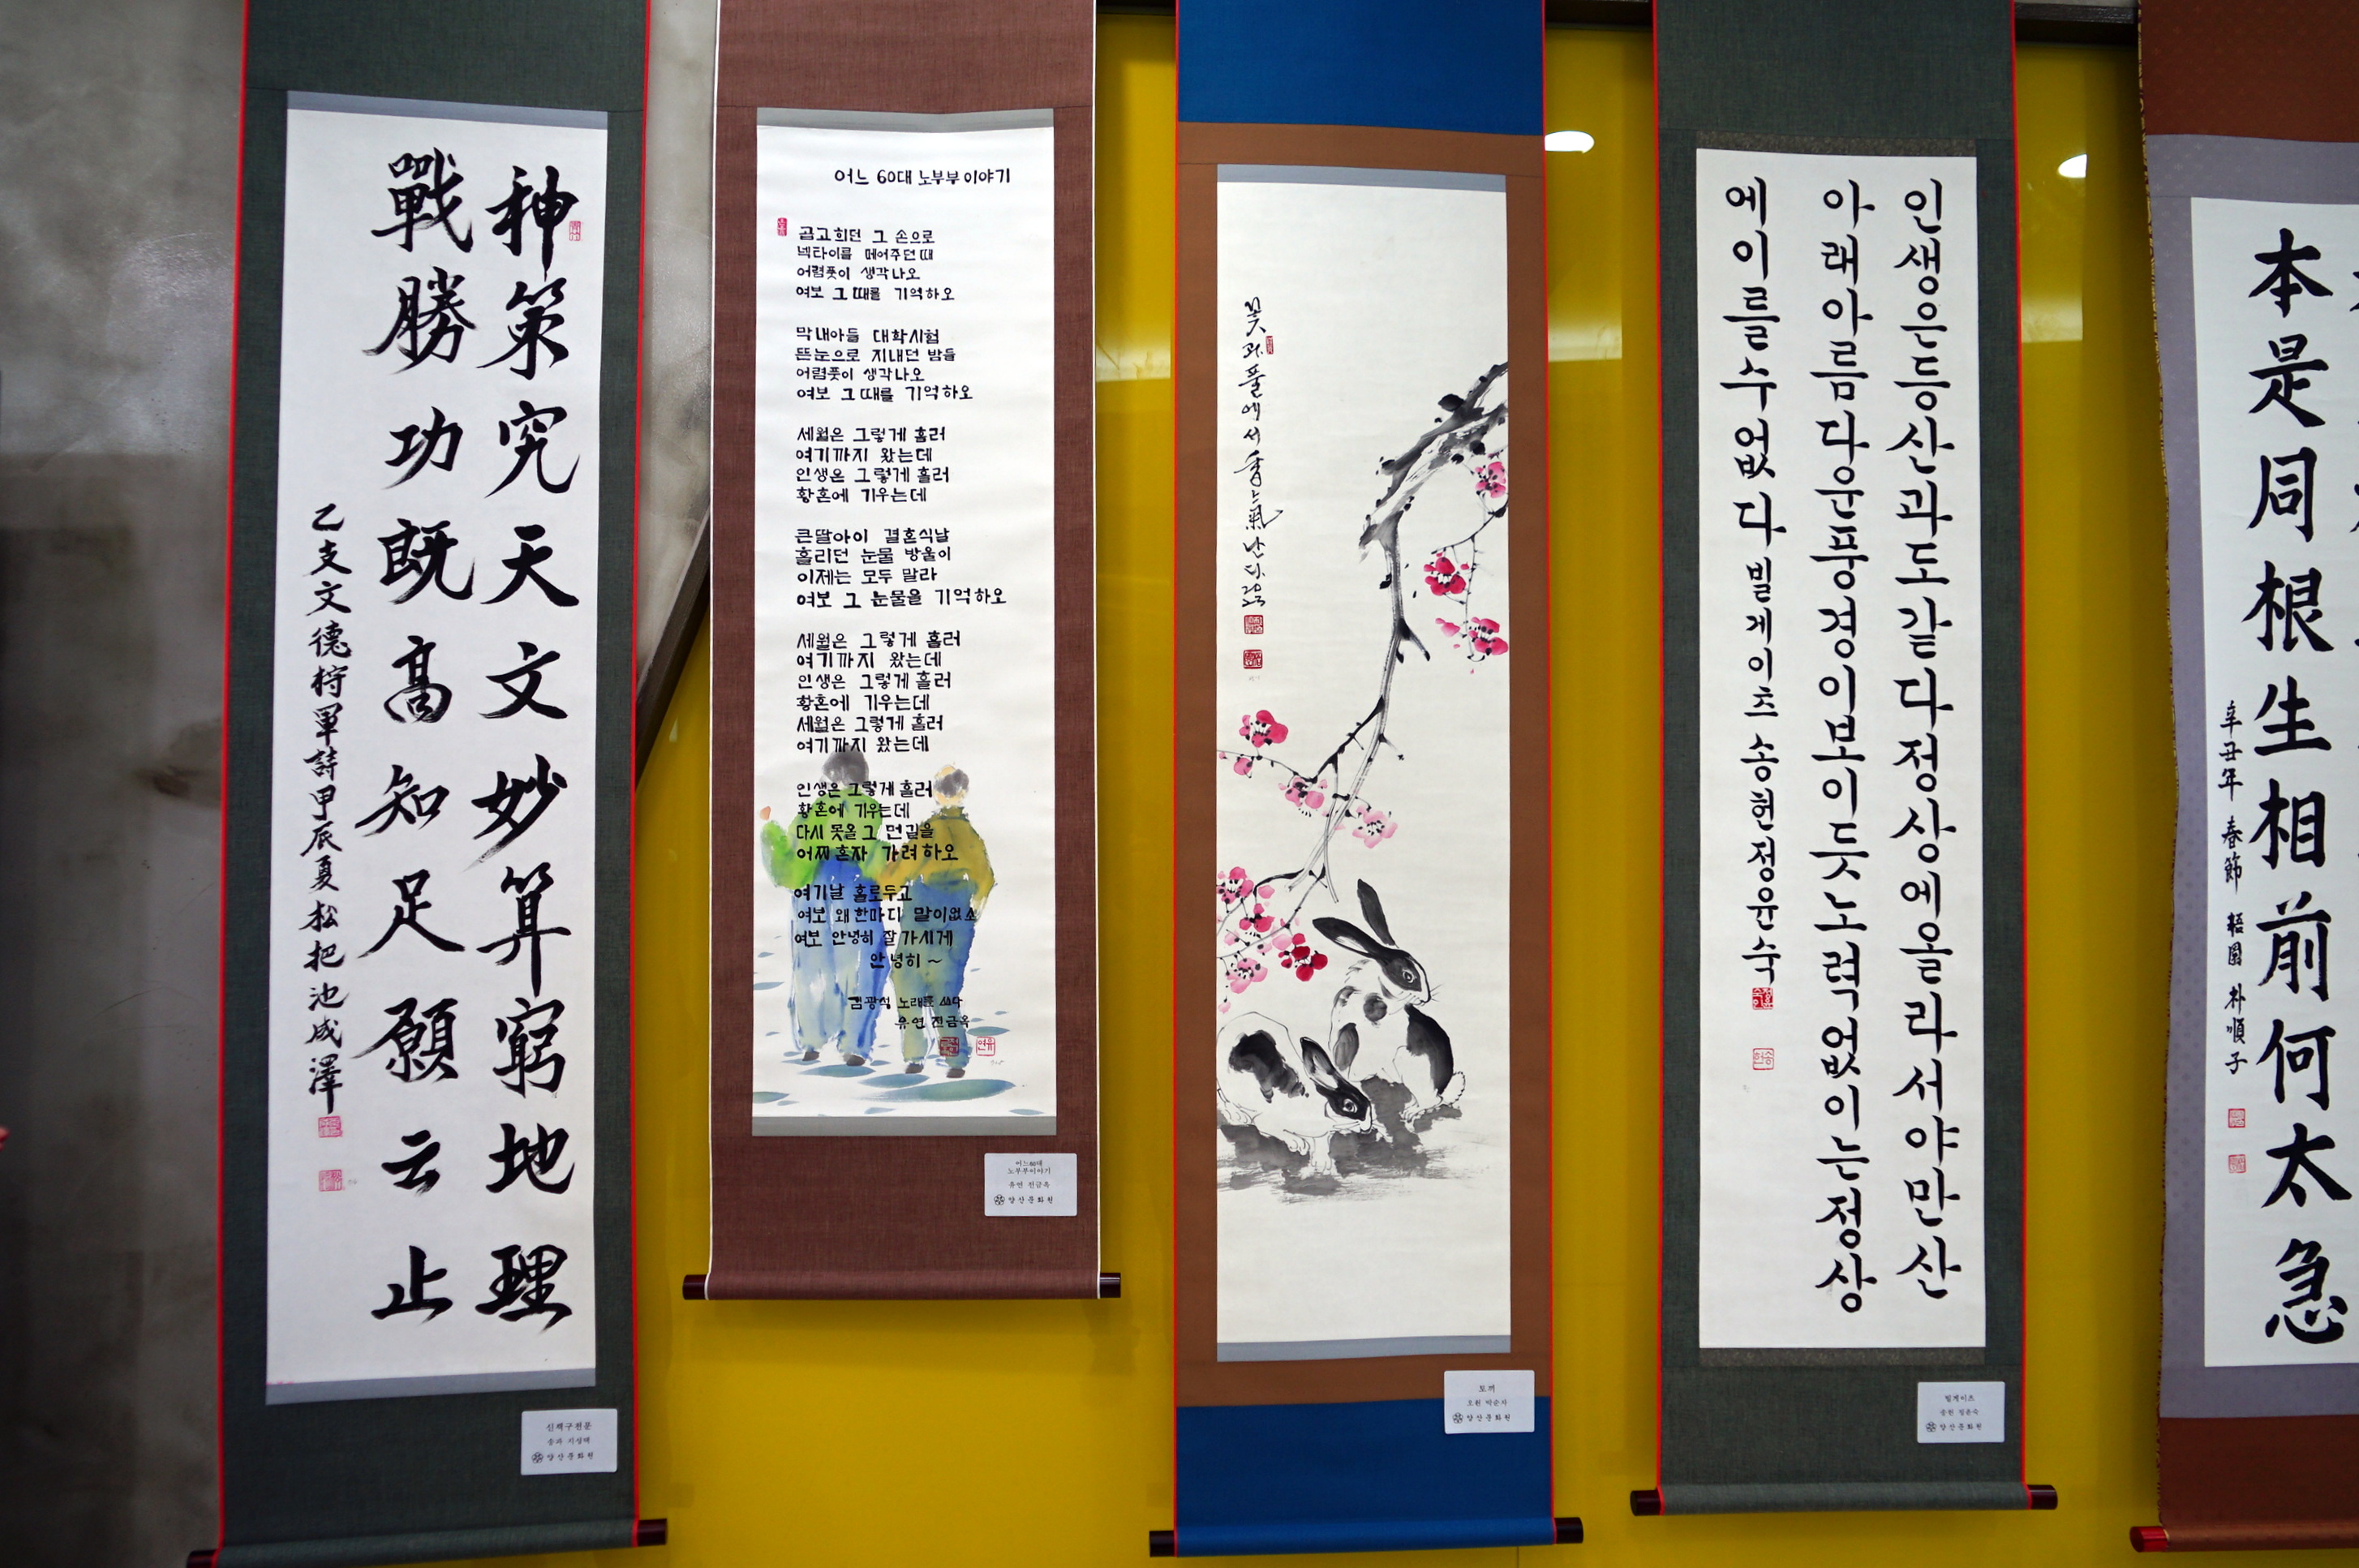 神策究天文妙算窮地理
戰勝功旣高知足願云止
乙支文德將軍詩甲辰夏松把池成澤
신책구천문
송파 지성택
양산문화원
어느 60대 노부부 이야기
곱고희던 그 손으로
넥타이를 메어주던때
어렴풋이 생각나오
여보 그때를 기억하오
막내아들 대학시험
뜬눈으로 지내던 밤들
어렴풋이 생각나오
여보 그때를 기억하오
세월은 그렇게 흘러
여기까지 왔는데
인생은 그렇게 흘러
황혼에 기우는데
큰딸아이 결혼식날
흘리던 눈물 방울이
이제는 모두 말라
여보 그 눈물을 기억하오
세월은 그렇게 흘러
여기까지 왔는데
인생은 그렇게 흘러
황혼에 기우는데
세월은 그렇게 흘러
여기까지 왔는데
인생은 그렇게 흘러
황혼에 기우는데
다시 못올 그 먼길을
어찌 혼자 가려하오
여기날 홀로두고
여보 왜 한마디 말이없소
여보 안녕히 잘가시게
안녕히 ~
김광석 노래를 쓰다
유연 전금옥
어느60대
노부부이야기
유연 전금옥
양산문화원
꽃과 풀에서 香氣 난다
토끼
오원 박순자
양산문화원
인생은등산과도같다정상에올라서야만산
아래아름다운풍경이보이듯노력없이는정상
에이를수없다 빌게이츠 송헌정윤숙
빌게이츠
송헌 정윤숙
양산문화원
本是同根生相前何太急
辛丑年 春節 梧園 朴順子